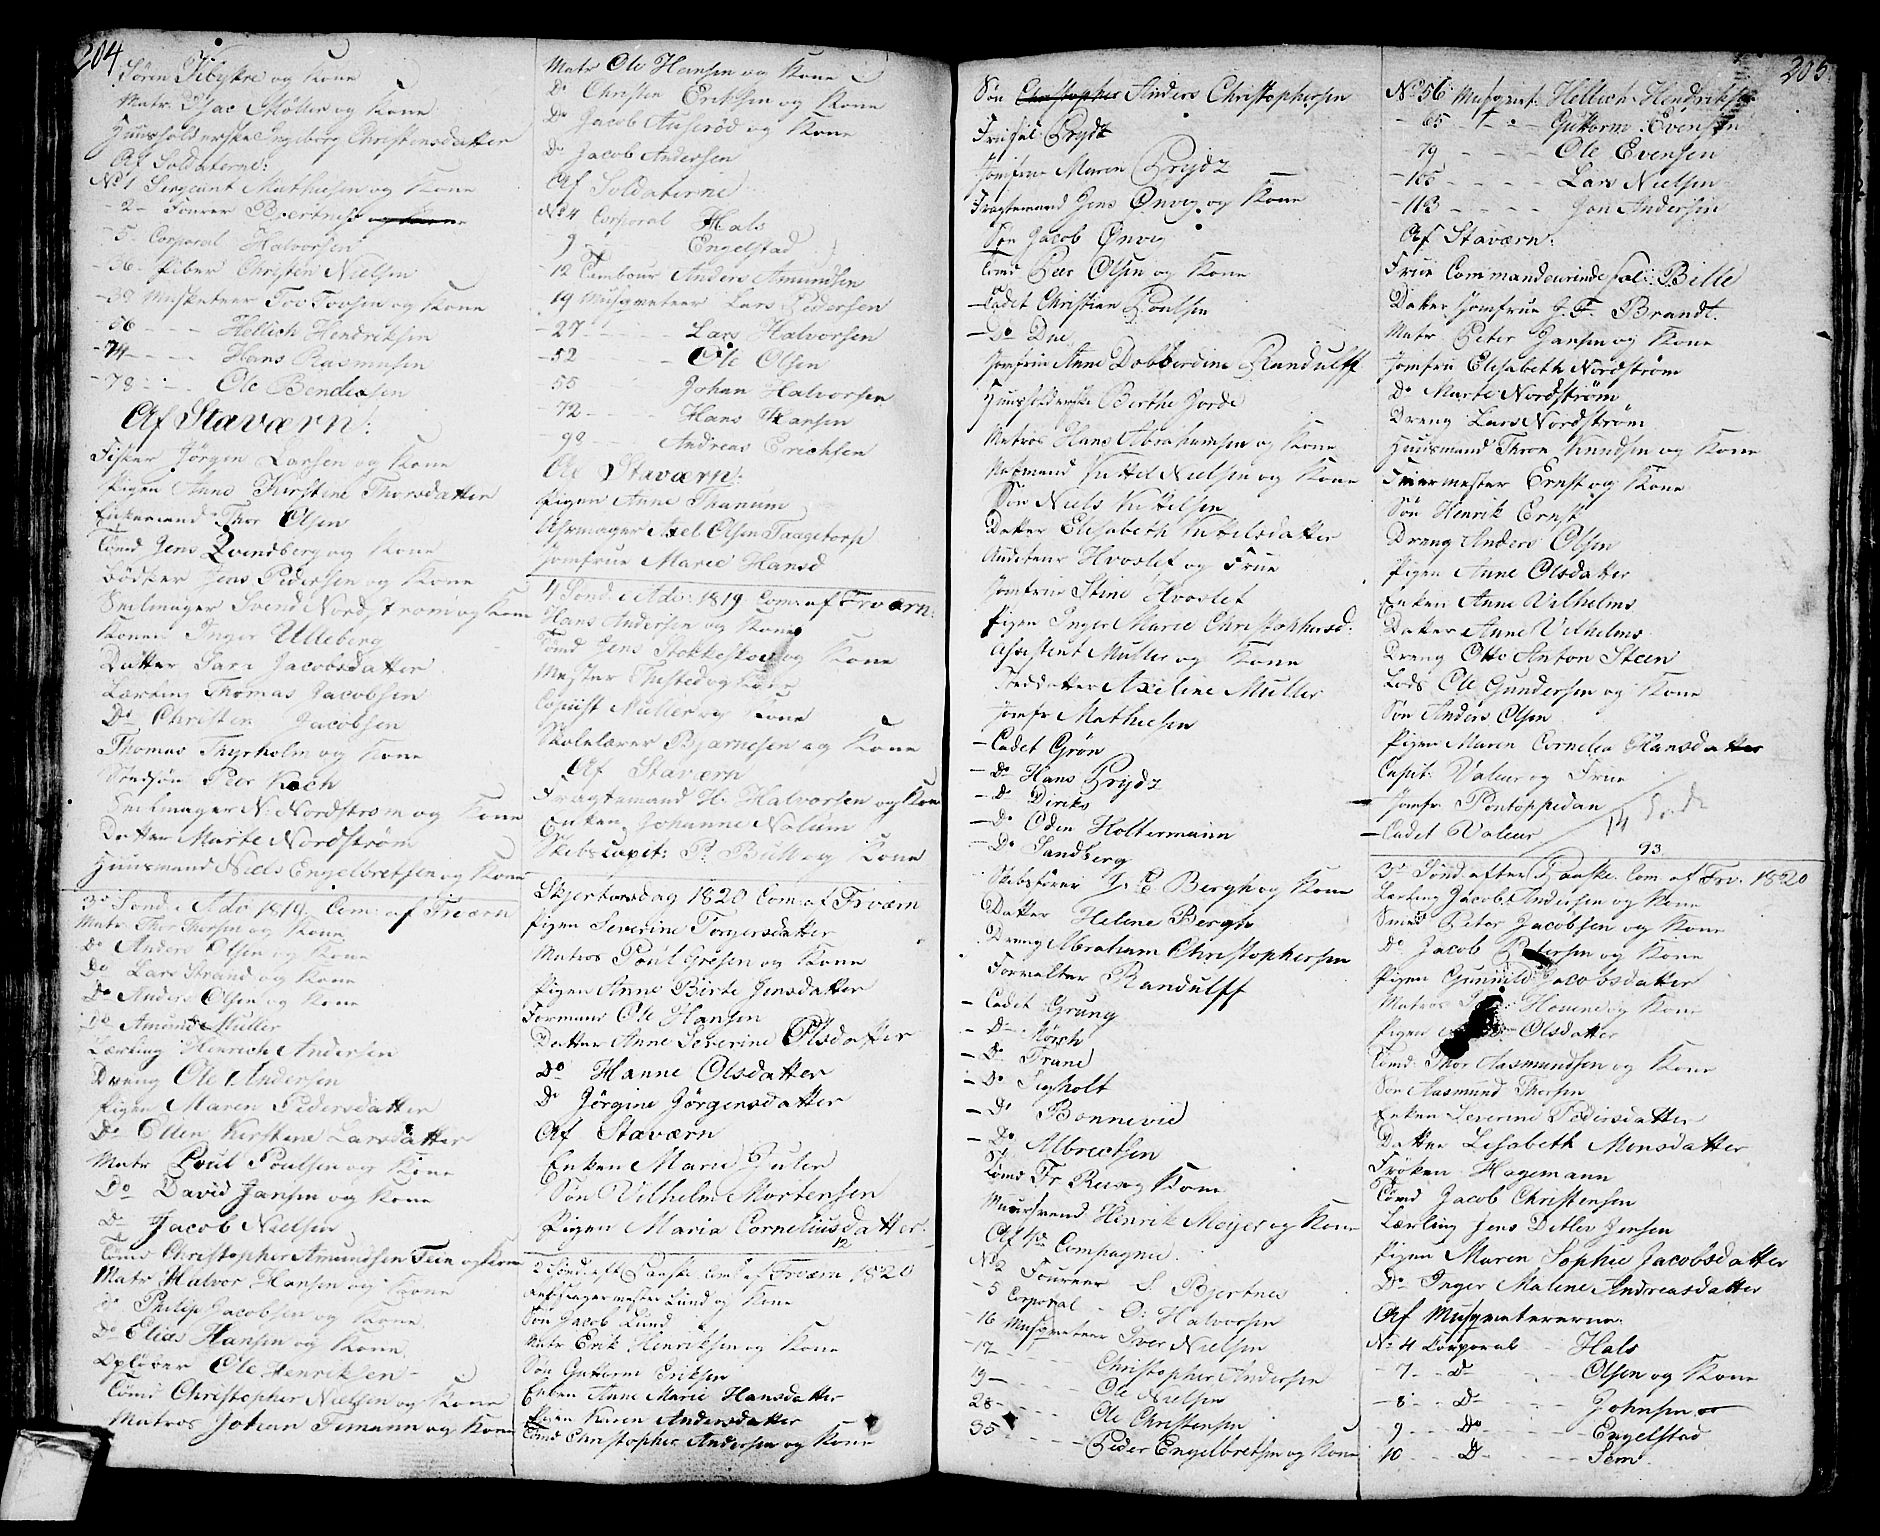 204
Sören Kibykre og Kone
Matr. Isac Möller og Kone
Huusholderske Ingeborg Christensdatter
Af Soldaterne:
No 1 Sergeant Mathiesen og Kone
- 2 - Fourer Bjertnes og Kone
- 5. Corporal Halvorsen
- 36 - Piber Christen Nielsen
- 38 Musketeer Tov Tovsen og Kone
56 - - - Hellich Hendriksen
- 74 - - - Hans Rasmusen
- 78 - - - Ole Bendixsen
Af Staværn:
Fisker Jörgen Larsen og Kone
Pigen Anne Kirstine Thorsdatter
Enkemand Thor Olsen
Tömd Jens Svendberg og Kone
Bödker Jens Pedersen og Kone
Seilmager Svend Nordstrom og Kone
Konen Inger Ulleberg
Datter Sara Jacobsdatter
Lærling Thomas Jacobsen
Do Christen Jacobsen
Thomas Thyrholm og Kone
Sönsön Peer Koch
Seilmager N. Nordstrom og Kone
Datter Marte Nordström
Huusmand Niels Engelbretsen og Kone
3d Sönd. Adv. 1819 Com: af Frværn
Matr Thor Thorsen og Kone
Do Anders Olsen og Kone
Do Lars Strand og Kone
Do Anders Olsen og Kone
Do Amund Müller
Lærling Henrich Andersen
Dreng Ole Andersen
Pigen Maren Pedersdatter
Do Ellen Kirstine Larsdatter
Matr Poul Poulsen og Kone
Do David Jansen og Kone
Do Jacob Nielsen
Tömd Christopher Amundsen Tein og Kone
Matr Halvor Hansen og Kone
Do Philip Jacobsen og Kone
Do Elias Hansen og Kone
Oplöber Ole Henriksen
Tömd Christopher Nielsen og Kone
Matros Johan Timann og Kone
Matr Ole Hansen og Kone
Do Christen Eriksen og Kone
Do Jacob Auseröd og Kone
Do Jacob Andersen
Af Soldaterne
No 4 Corporal Hals
- 9 - Engelstad
- 12 Tambour Anders Amundsen
19 Musqueteer Lars Pedersen
- 27 - - - Lars Halvorsen
- 52 - Ole Olsen
55 Johan Halvorsen
- 72 - - Hans Hansen
- 98 - - Andreas Erichsen
Ole Staværn:
Pigen Anne Thanum
Uhrmager Axel Olsen Taagetorp
Jomfrue Marie Hansd
4 Sönd. i Adv. 1819 Com: af Frværn:
Hans Andersen og Kone
Tömd Jens Stokkeskov og Kone
Mester Thisted og Kone
Copiist Müller og Kone
Skolelærer Bjarnesen og Kone
Af Staværn
Fragtemand H. Halvorsen og Kone
Enken Johanne Nalum
Skibscapit: P. Bull og Kone
Skjertorsdag 1820 Com: af Frværn
Pigen Severine Torgersdatter
Matros Poul Gresen og Kone
Pigen Anne Birte Jensdatter
Formand Ole Hansen
Datter Anne Severine Olsdatter
Do Hanne Olsdatter
Do Jörgine Jörgensdatter
Af Staværn
Enken Marie Juler
Sön Vilhelm Mortensen
Pigen Maria Corneliusdatter
12
2 Sönd. eft. Paaske Com: af Frværn 1820
Lund og Kone
Sön Jacob Lund
Matr Erik Henriksen og Kone
Sön Guttorm Eriksen
Enken Anne Marie Hansdatter
Pigen Karen Andersdatter
Tömd Christopher Andersen og Kone
Sön Christopher Anders Christophersen
Frue sal Prydz
Jomfrue Maren Prydz
Fragtemand Jens Önvig og Kone
Sön Jacob Önvig
Tömd Peer Olsen og Kone
- Cadet Christian Poulsen
- Do Due
Jomfrue Anne Dobberdine Randulff
Huusholderske Berthe Horde
Matros Hans Abrahamsen og Kone
Kittel Nielsen og Kone
Sön Niels Kittelsen
Datter Elisabeth Kittelsdatter
Auditeur Hvoslef og Frue
Jomfrue Stine Hvoslef
Pigen Inger Marie Christophersd:
Assistent Müller og Kone
Axeline Müller
Jomfr Mathiesen
- Cadet Grön
- Do Hans Prydz
- Do Diriks
- Do Oden Holtermann
- Do Sandberg
Skibsförer J. C. Bergh og Kone
Datter Helene Bergh
Dreng Abraham Christophersen
Forvalter Randulff
- Cadet Grung
- Do Mörch
- Do Trane
- Do Sigholt
- Do Bonnevie
- Do Albrectsen
Tömd Fr Reis og Kone
Muursvend Henrik Meijer og Kone
Af 4de Compagnie
No 2 Foureer S. Bjertnes
5 Corporal - O. Halvorsen
16 Musqueteer Iver Nielsen
17 - - - Christopher Andersen
19 - - - Ole Nielsen
28 - - - Ole Christensen
35 - - - Peder Engelbretsen og Kone
205
No 56 Musquet: Hellich Hendriksen
- 65 - - Guttorm Evensen
- 79 - - - Ole Evensen
- 105 - - - Lars Nielsen
- 113 - - - Jon Andersen
Af Staværn:
Frue Commandeurinde sal: Bille
Datter Jomfrue J. F. Brandt
Matr Peter Jansen og Kone
Jomfru Elisabeth Nordström
Do Marte Nordström
Dreng Lars Nordström
Huusmand Thron Knudsen og Kone
Fuermester Ernst og Kone
Sön Henrik Ernst
Dreng Anders Olsen
Pigen Anne Olsdatter
Enken Anne Vilhelms
Datter Anne Vilhelms
Dreng Otto Anton Steen
Lods Ole Gundersen og Kone
Sön Anders Olsen
Pigen Maren Cornelia Hansdatter
Capit: Valeur og Frue
- Jomfr Pontoppidan
- Cadet Valeur
93
3d Sönd. efter Paaske. Com: af Frv. 1820
Lærling Jacob Andersen og Kone
Smed Peter Jacobsen og Kone
Do Jacob Petersen og Kone
Pigen Gunnild Jacobsdatter
Matros Heune og Kone
Pigen Olsdatter
Tömd Thor Aasmundsen og Kone
Sön Aasmund Thorsen
Enken Severine Pedersdatter
Datter Lisabeth Monsdatter
Fröken Hagemann
Tömd Jacob Christensen
Lærling Jens Detlev Jensen
Pigen Maren Sophie Jacobsdatter
Do Inger Maline Andreasdatter
Af Musquetererne:
No 4 Corporal - Hals
- 7 - - Do - - - Olsen og Kone
- 8 - - Do - - - Johnsen
- 9 - - Do - - - Engelstad
10 - - Do - - - Sem